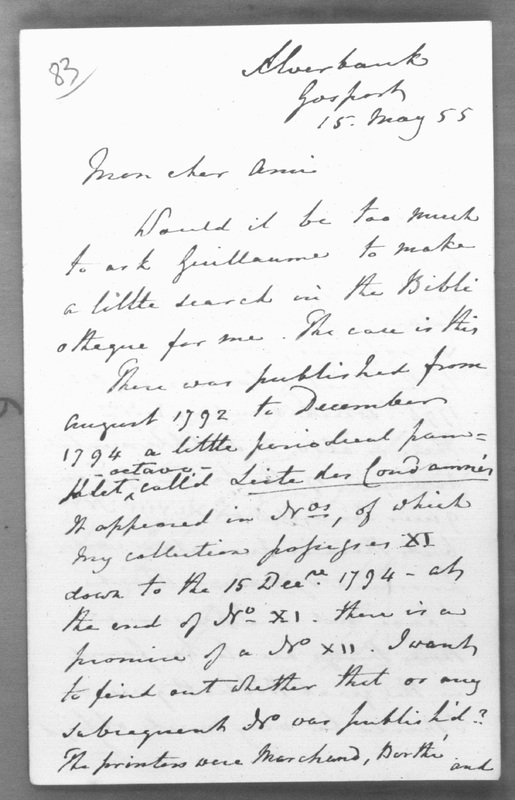 83
Alverbank
Gosport
15. May 55
Mon cher Ami
Would it be too much
to ask Guillaume to make
a little search in the Bibli
otheque for me. The case is this
There was published from
August 1792 to December
1794 a little periodical pam=
-octavo-
phlet, call'd Liste des Condamnés
It appeared in Nos, of which
my collection possesses XI
down to the 15 Decre. 1794 - at
the end of No XI. there is a
promise of a No XII. I want
to find out whether that or any
subsequent No was publish'd?
The printers were Marchand, Berthé and